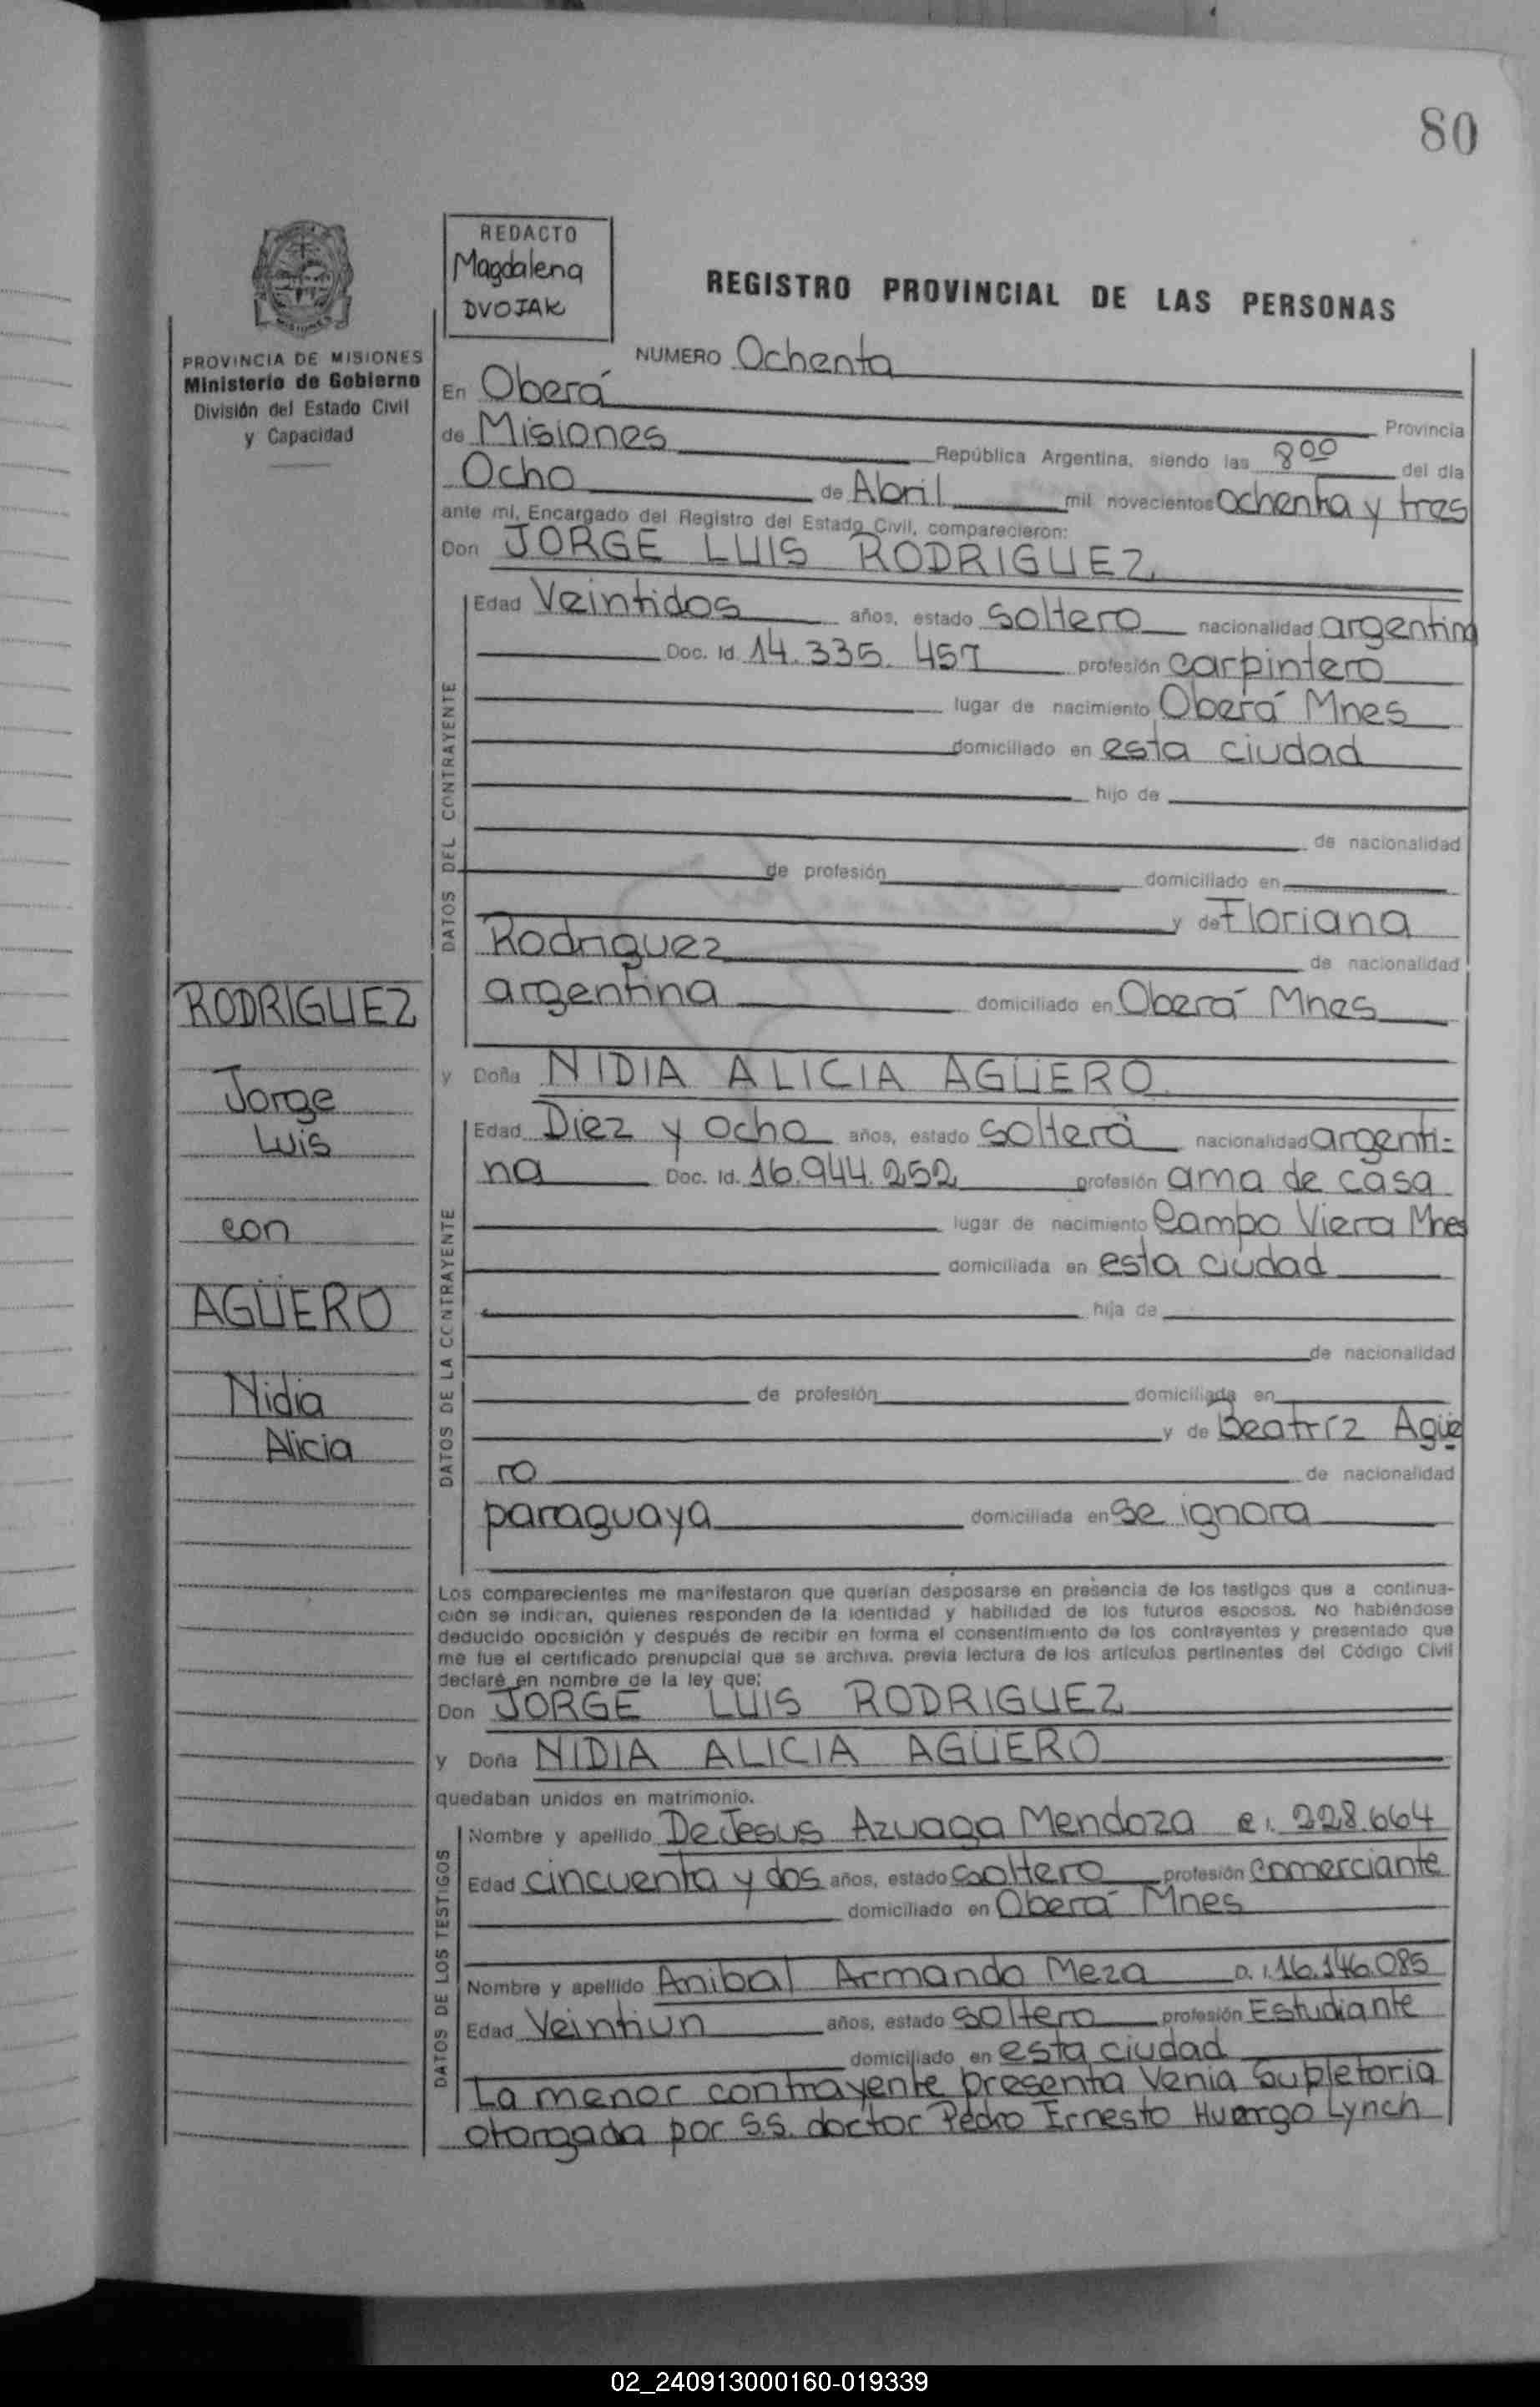 80
REDACTO
Magdalena
DVOJAK
REGISTRO PROVINCIAL DE LAS PERSONAS
PROVINCIA DE MISIONES
Ministerio de Gobierno
División del Estado Civil
y Capacidad
NUMERO Ochenta
En Oberá
Provincia
de Misiones República Argentina, siendo las 8 00 del día
Ocho de Abril mil novecientos ochenta y tres
ante mí, Encargado del Registro del Estado Civil, comparecieron:
Don JORGE LUIS RODRIGUEZ
DATOS DEL CONTRAYENTE
Edad Veintidos años, estado soltero nacionalidad argentina
Doc. Id. 14.335.457 profesión carpintero
lugar de nacimiento Oberá Mnes
domiciliado en esta ciudad
hijo de
de nacionalidad
de profesión domiciliado en
y de Floriana
Rodriguez de nacionalidad
argentina domiciliado en Oberá Mnes
RODRIGUEZ
Jorge
Luis
con
AGÜERO
Nidia
Alicia
y Doña NIDIA ALICIA AGÜERO
DATOS DE LA CONTRAYENTE
Edad Diez y ocho años, estado soltera nacionalidad argenti=
na Doc. Id. 16.944.252 profesión ama de casa
lugar de nacimiento Campo Viera Mnes
domiciliada en esta ciudad
hija de
de nacionalidad
de profesión domiciliada en
y de Beatríz Agüe
ro de nacionalidad
paraguaya domiciliada en se ignora
Los comparecientes me manifestaron que querían desposarse en presencia de los testigos que a continua-
ción se indican, quienes responden de la identidad y habilidad de los futuros esposos. No habiéndose
deducido oposición y después de recibir en forma el consentimiento de los contrayentes y presentado que
me fue el certificado prenupcial que se archiva, previa lectura de los artículos pertinentes del Código Civil
declaré en nombre de la ley que:
Don JORGE LUIS RODRIGUEZ
y Doña NIDIA ALICIA AGÜERO
quedaban unidos en matrimonio.
DATOS DE LOS TESTIGOS
Nombre y apellido De Jesus Azuaga Mendoza c.i. 228.664
Edad cincuenta y dos años, estado soltero profesión comerciante
domiciliado en Oberá Mnes
Nombre y apellido Anibal Armando Meza D.I. 16.146.085
Edad Veintiun años, estado soltero profesión Estudiante
domiciliado en esta ciudad
La menor contrayente presenta Venia Supletoria
otorgada por S.S. doctor Pedro Ernesto Huergo Lynch
02_240913000160-019339